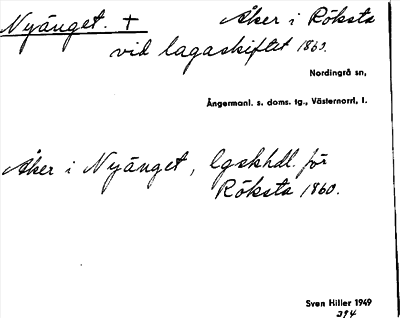 Nyänget. + Åker i Röksta
vid lagaskiftet 1860.
Nordingrå sn,
Ångermanl. s. doms. tg., Västernorrl. l.
Åker i Nyänget, lgskhdl. för
Röksta 1860.
Sven Hiller 1949
294